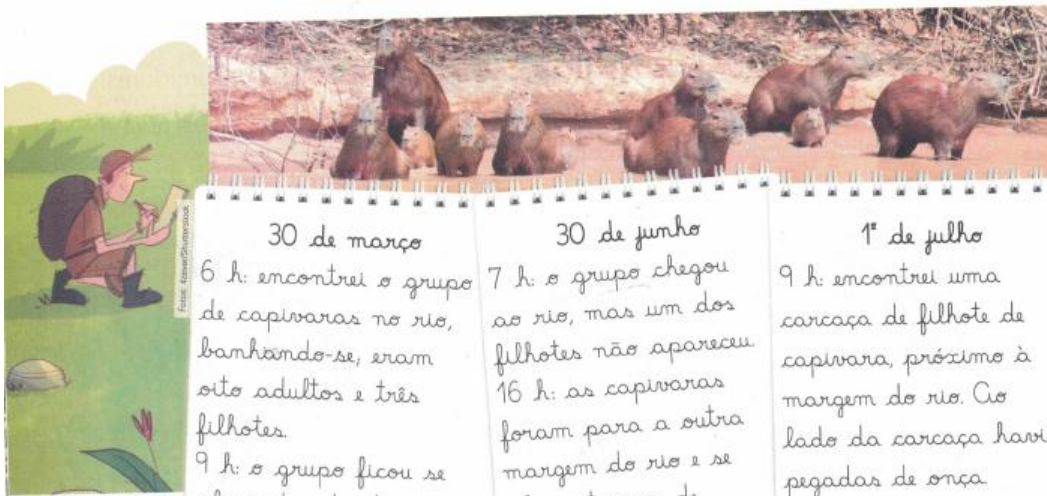 Fotos: Azever/Shutterstock
30 de março
6 h: encontrei o grupo
de capivaras no rio,
banhando-se; eram
oito adultos e três
filhotes.
9 h: o grupo ficou se
30 de junho
7 h: o grupo chegou
ao rio, mas um dos
filhotes não apareceu.
16 h: as capivaras
foram para a outra
margem do rio e se
de
1º de julho
9 h: encontrei uma
carcaça de filhote de
capivara, próximo à
margem do rio. Ao
lado da carcaça havi
pegadas de onça